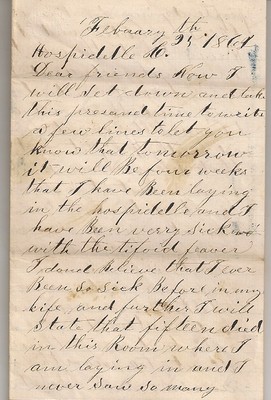 Febuary th
Hospidelle 25 1864
Dear friends Now I
will set down and take
this presand time to write
a few lines to let you
know that tomorrow
it will Be four weeks
that I have Been laying
in the hospidelle and I
have Ben verry sick
with the tifoid feaver
I dond believe that I ever
Been So Sick Before in my
life and further I will
State that fifteen died
in this Room where I
am laying in and I
never saw so many